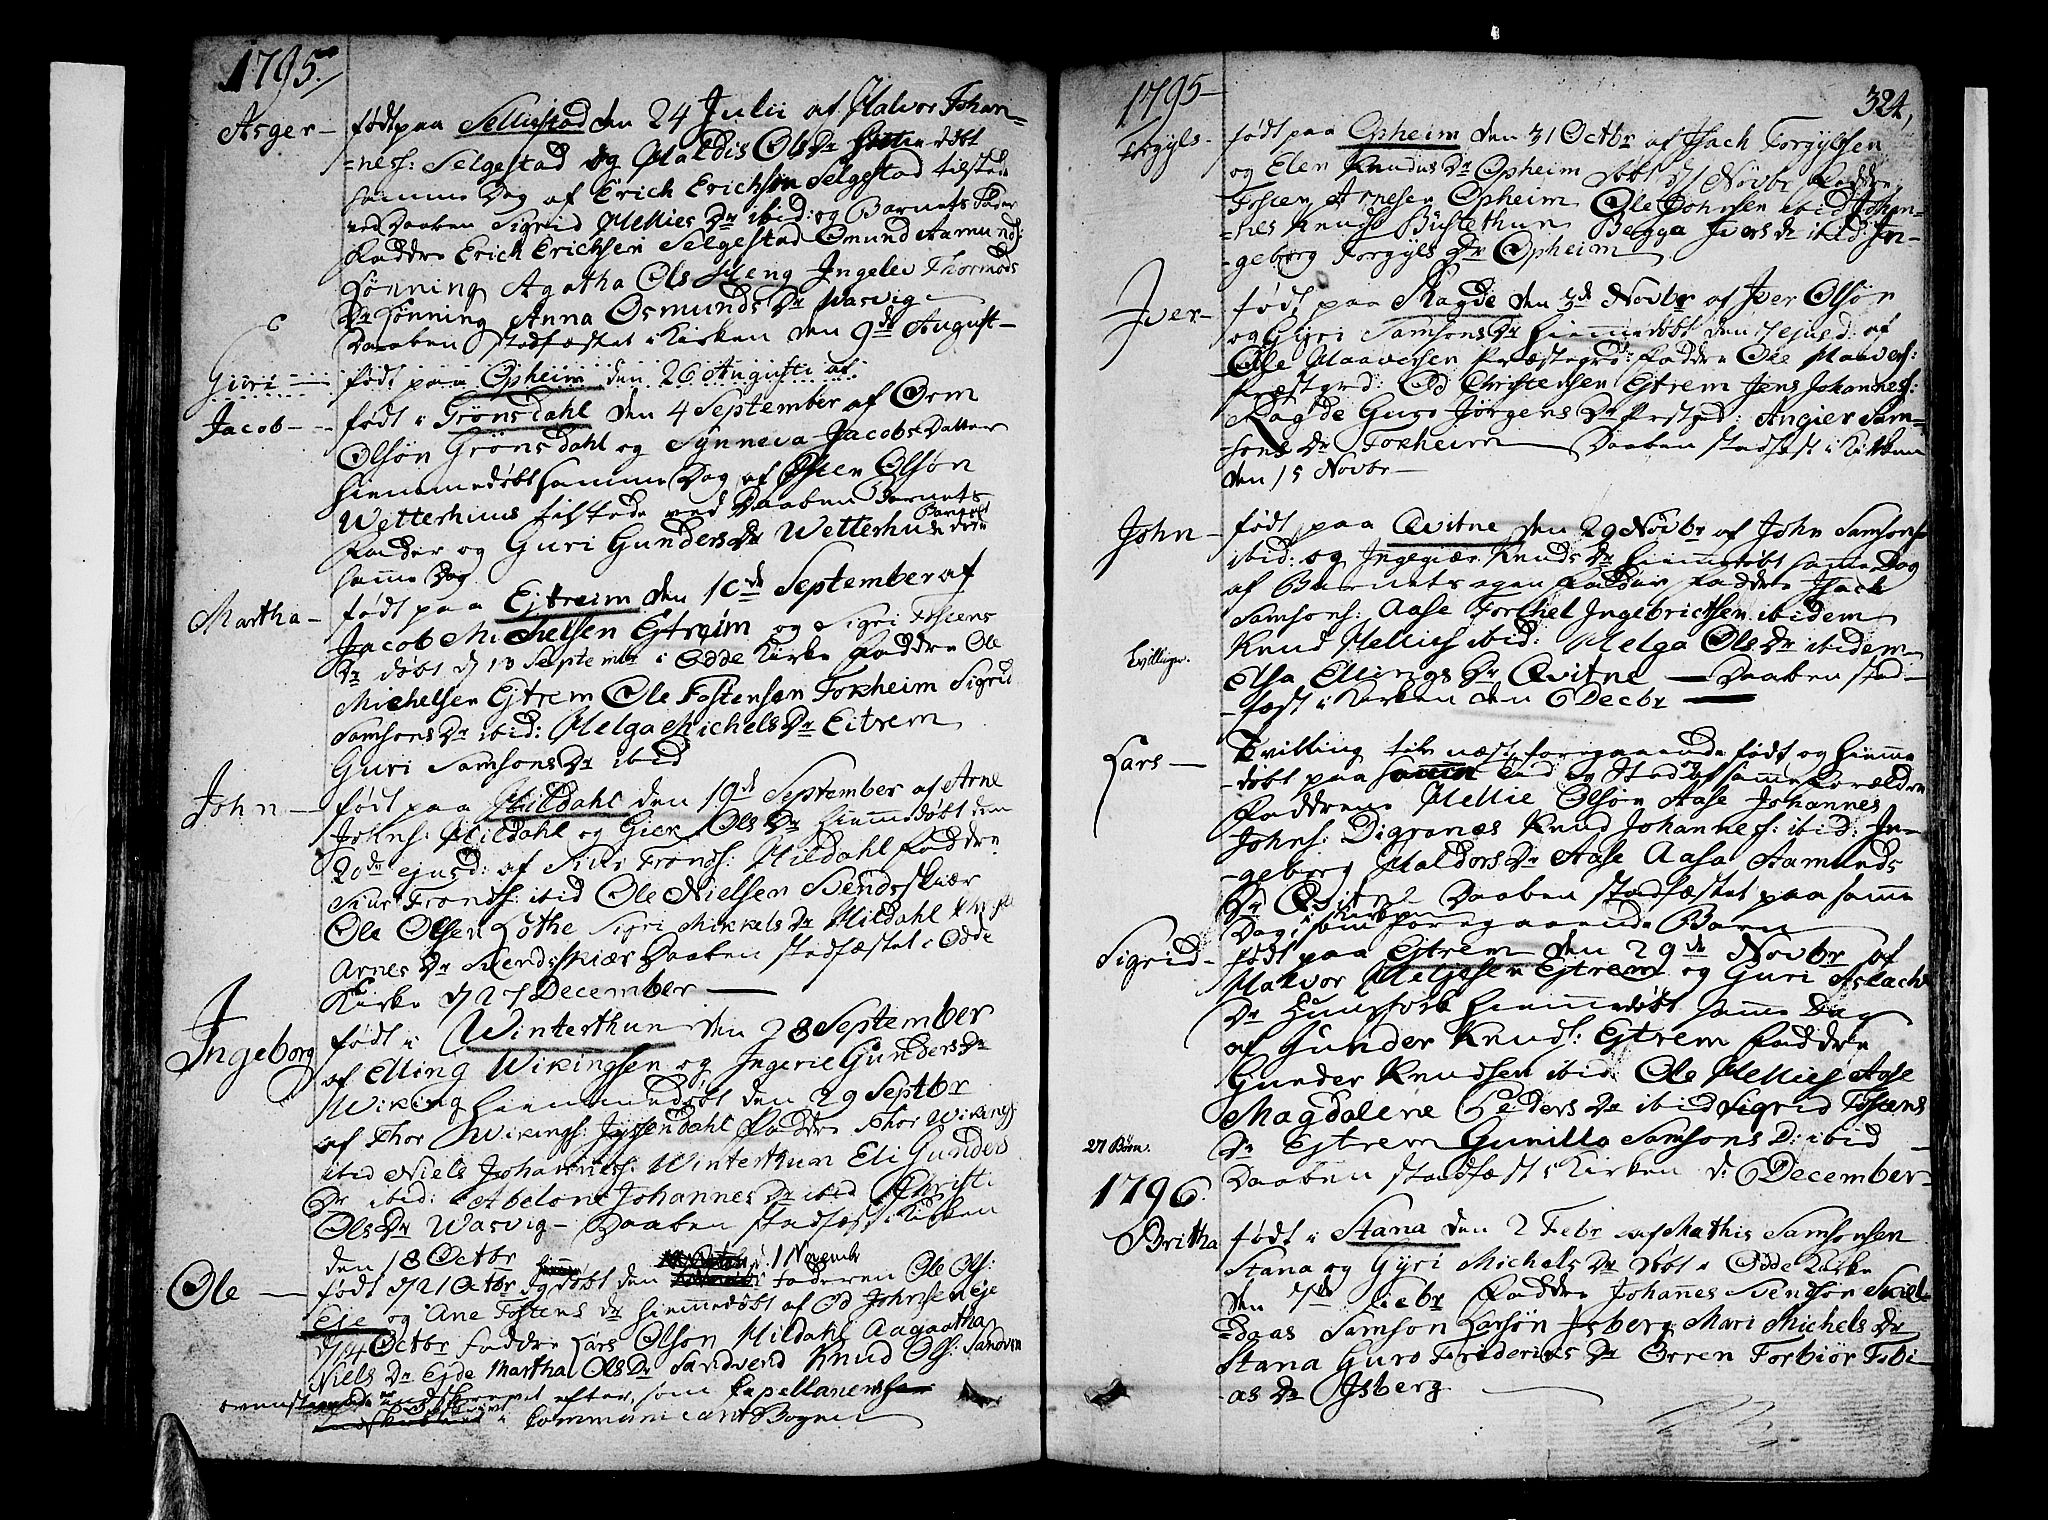 1795.
Asger — født paa Sellestad den 24 Julii af Halvor Johan=
=ness: Selgestad og Haldis Ols Dr døbt
samme Dag af Erich Erichsen Selgestad tilstede
ved Daaben Sigrid Hellies Dr ibid: og Barnets Fader
Faddre Erich Erichsen Selgestad Omund Aamunds:
Sønning Agatha Ols Heng Ingelev Thormods
Dr Sønning Anna Osmunds Dr Wasvig
Daaben stadfæstet i Kirken den 9de August —
Guri — født paa Opheim den 26 Augusti af
Jacob — født i Grønsdahl den 4 September af Orm
Olsøn Grønsdahl og Synneva Jacobs Datter
hiemmedøbt samme Dag af Olsøn
Wetterhuus tilstede ved Daaben Barnets
Fader og Guri Gunders Dr Wetterhuus Barnet døde
samme Dag
Martha — født paa Ejtreim den 10de September af
Jacob Michelsen Ejtreim og Sigri Tostens
Dr døbt d 13 Septembr i Odde Kirke Faddre Ole
Michelsen Ejtrem Ole Tostensen Tokheim Sigrid
Samsons Dr ibid: Helga Michels Dr Eitrem
Guri Samsons Dr ibid
John — født paa Hildahl den 19de September af Arne
Johns: Hildahl og Ols Dr hiemmedøbt den
20de ejusd: af Siur Tronds: Hildahl Faddre
Siur Tronds: ibid Ole Nielsen Svendsskiær
Ole Olsen Løthe Sigri Mikkels Dr Hildahl
Arnes Dr Svendsskiær Daaben stadfæstet i Odde
Kirke d 27 December —
Ingeborg født i Winterthun den 28 September
af Elling Wikingsen og Ingerie Gunders Dr
Wiking hiemmedøbt den 29 Septbr
af Thor Wikings: Jyssendahl Faddre Thor Wikings:
ibid Niels Johannes: Winterthun Eli Gunders
Dr ibid: Abelone Johannes Dr ibid Christi
Ols Dr Wasvig — Daaben stadfæst i Kirken
den 18 Octbr
Ole — født d 21 Octbr og døbt den 1 Novembr Faderen Ole Ols:
Eje og Ane Tostens dr hiemmedøbt af Od Johnsen eje
Octbr Faddre Lars Olson Hildahl Aagaatha
Niels Dr Ejde Martha Ols Dr Sandvend Knud Ols: Sandven
efter, som Capellanen
i Communicant Bogen

1795 —
324,
Torgyls — født paa Opheim den 31 Octbr af Isach Torgylsen
og Elen Knuds Dr Opheim døbt d Novbr Faddre
Tosten Arnesen Opheim Ole Johnsen ibid Johan=
=nes Knuds Bustethun Begga Ivers dr ibid: In=
geborg Torgyls Dr Opheim
Iver — født paa Ragde den 3de Novbr af Iver Olsøn
og Gyri Samsons Dr hiemmedøbt den 7 ejusd: af
Ole Haaversen Præstegrd: Faddre Ole Haavers:
Præstgrd: Od Christensen Ejtrem Jens Johannes:
Ragde Guro Jørgens Dr Præstgd: Angier Sam=
sons Dr Tokheim Daaben stadfæst i Kirken
den 15 Novbr —
John — født paa Qvitne den 29 Novbr af John Samsons:
ibid: og Ingegiær Knuds Dr hiemmedøbt samme Dag
af Barnets egen Fader Faddre Isach
Samsons: Aase Torchel Ingebrichtsen ibidem
Knud Hellies ibid: Helga Ols Dr ibidem
Tvillinger.
Elsa Ellings Dr Qvitne — Daaben stad=
=fæst i Kirken den 6 Decbr —
Lars — Tvilling til næst foregaaende født og hiemme
=døbt paa samme tid og Sted af samme Forældre
Faddrene Hellie Olsøn Aase Johannes
Johns: Digranæs Knud Johannes: ibid: In=
=geborg Haldors Dr Aase Aasa Aamunds
Dr Qvitne Daaben stadfæstet paa samme
Dag i Kirken som foregaaende Barn
Sigrid — født paa Ejtrem den 29de Novbr af
Halvor Helgesen Ejtrem og Guri Aslachs
Dr hiemmedøbt samme Dag
af Gunder Knuds: Ejtrem Faddre
Gunder Knudsen ibid Ole Hellies Aase
Magdalene Peders Dr ibid Sigrid Tostens
27 Børn.
Dr Ejtrem Gunilla Samsons D: ibid —
Daaben stadfæst i Kirken d: 6 December —
1796.
Britha født i Stana den 2 Febr af Mathis Samsonsen
Stana og Gyri Michels Dr døbt i Odde Kirke
den 7de Febr Faddre Johannes Svendsøn Skiel=
=daas Samson Larsøn Isberg Mari Michels Dr
Stana Guro Friderics Dr Orren Torbiør Tobi=
as Dr Isberg —